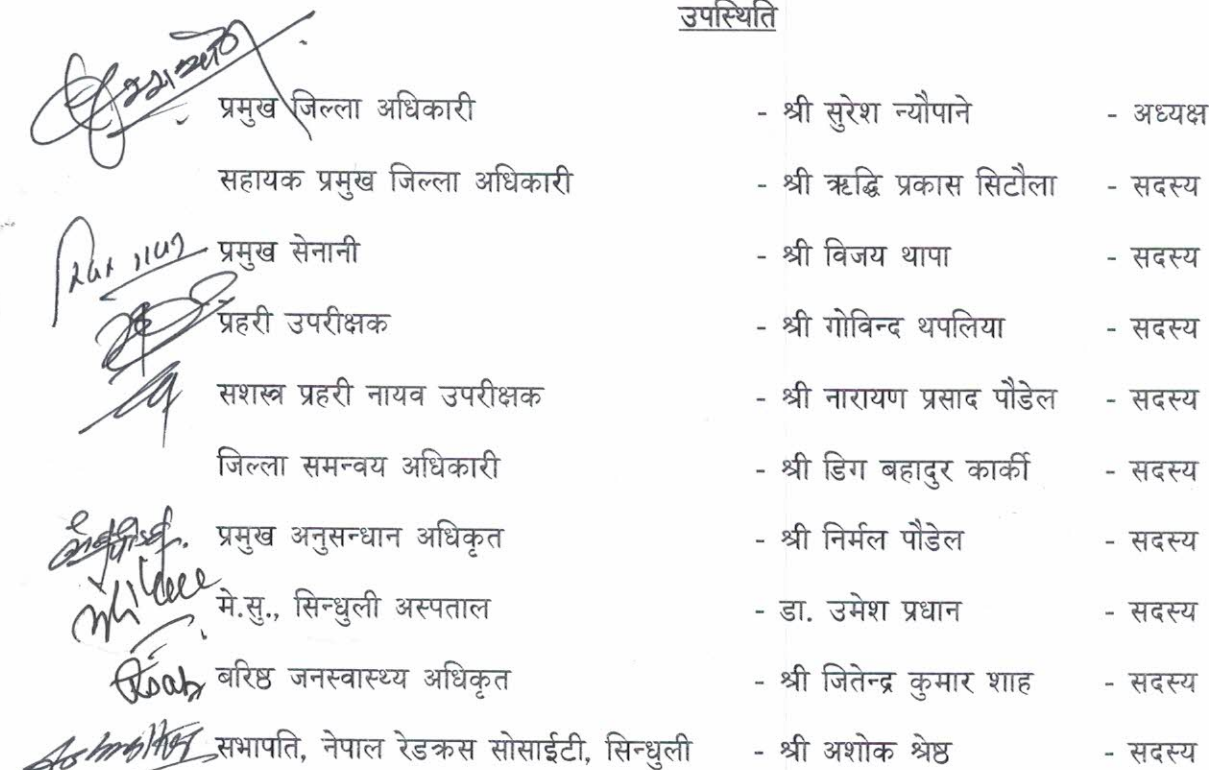 उपस्थिति
प्रमुख जिल्ला अधिकारी - श्री सुरेश न्यौपाने - अध्यक्ष
सहायक प्रमुख जिल्ला अधिकारी - श्री ऋद्धि प्रकास सिटौला - सदस्य
प्रमुख सेनानी - श्री विजय थापा - सदस्य
प्रहरी उपरीक्षक - श्री गोविन्द थपलिया - सदस्य
सशस्त्र प्रहरी नायव उपरीक्षक - श्री नारायण प्रसाद पौडेल - सदस्य
जिल्ला समन्वय अधिकारी - श्री डिग बहादुर कार्की - सदस्य
प्रमुख अनुसन्धान अधिकृत - श्री निर्मल पौडेल - सदस्य
मे.सु., सिन्धुली अस्पताल - डा. उमेश प्रधान - सदस्य
बरिष्ठ जनस्वास्थ्य अधिकृत - श्री जितेन्द्र कुमार शाह - सदस्य
सभापति, नेपाल रेडक्रस सोसाईटी, सिन्धुली - श्री अशोक श्रेष्ठ - सदस्य